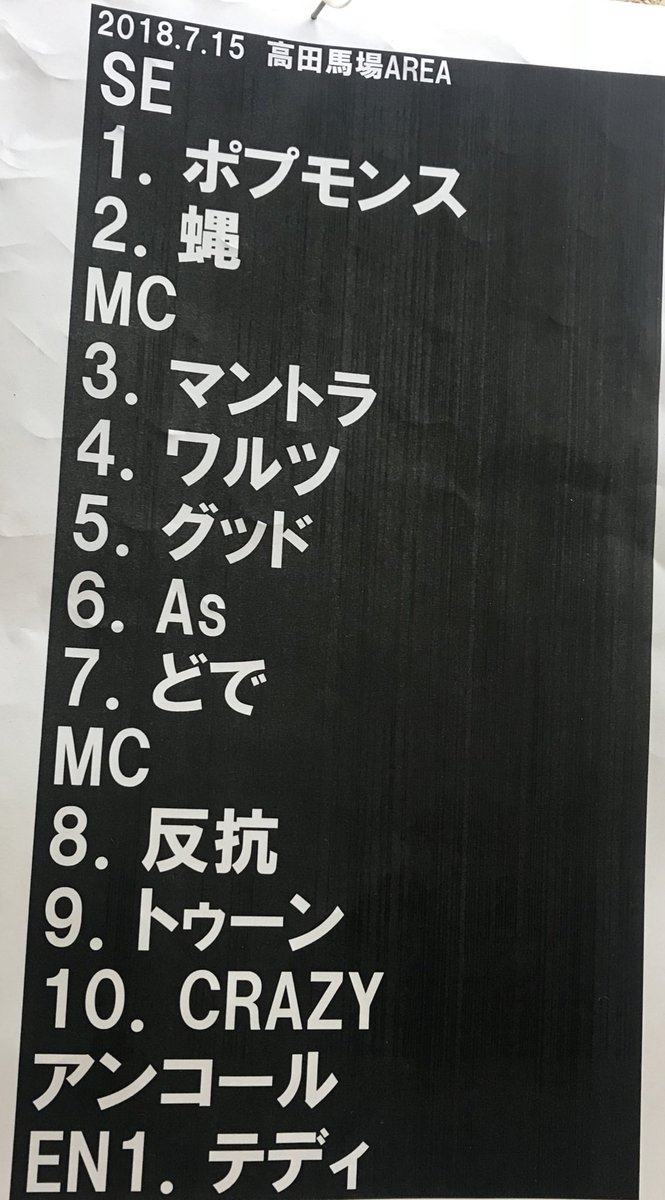 2018.7.15 高田馬場AREA
SE
1. ポプモンス
2. 蝿
MC
3. マントラ
4. ワルツ
5. グッド
6. As
7. どで
MC
8. 反抗
9. トゥーン
10. CRAZY
アンコール
EN1. テディ